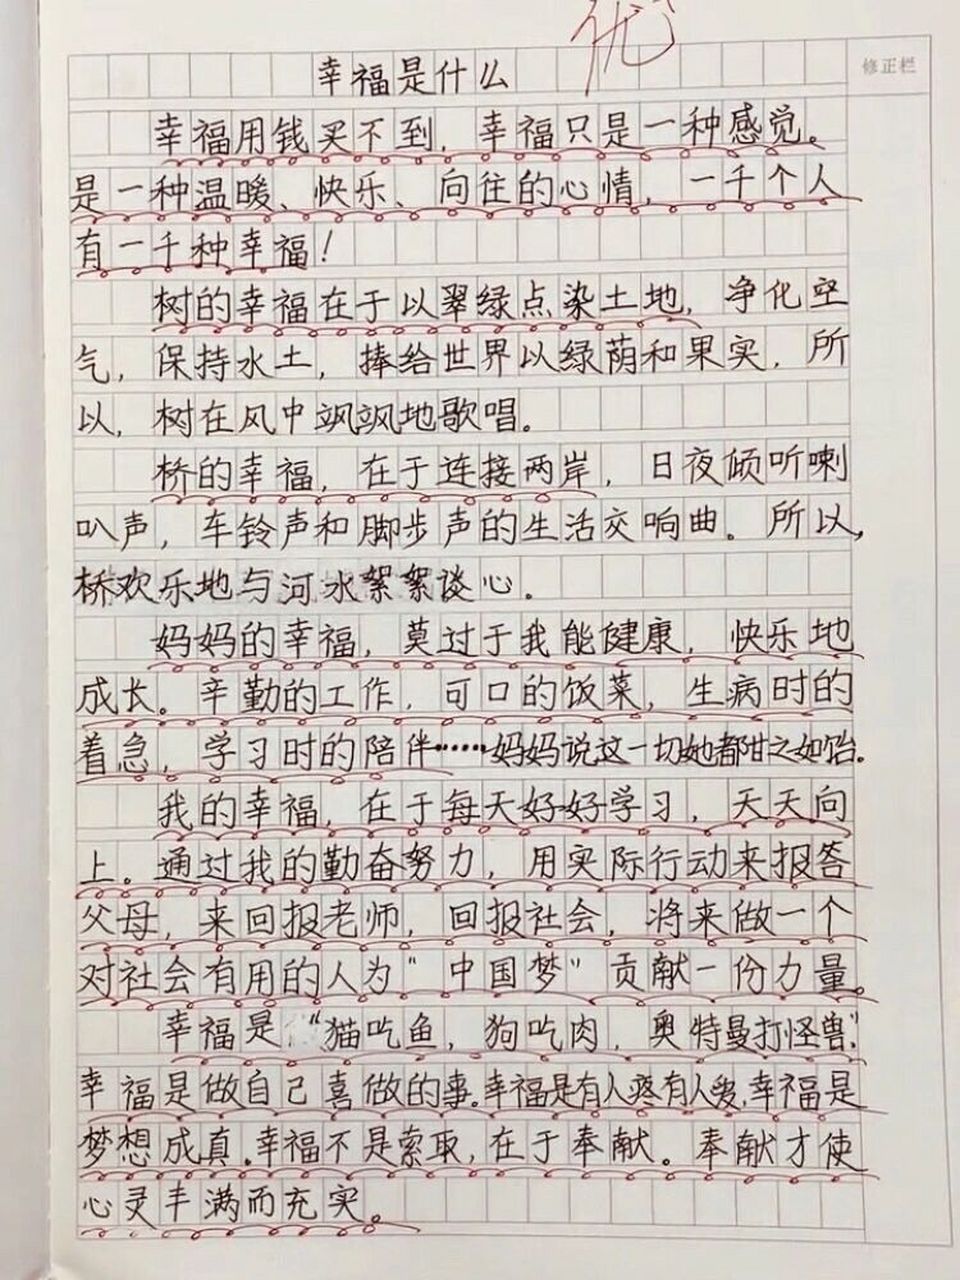 优
修正栏
幸福是什么
幸福用钱买不到，幸福只是一种感觉。
是一种温暖、快乐、向往的心情，一千个人
有一千种幸福！
树的幸福在于以翠绿点染土地，净化空
气，保持水土，捧给世界以绿荫和果实，所
以，树在风中飒飒地歌唱。
桥的幸福，在于连接两岸，日夜倾听喇
叭声，车铃声和脚步声的生活交响曲。所以，
桥欢乐地与河水絮絮谈心。
妈妈的幸福，莫过于我能健康，快乐地
成长。辛勤的工作，可口的饭菜，生病时的
着急，学习时的陪伴……妈妈说这一切她都甘之如饴。
我的幸福，在于每天好好学习，天天向
上。通过我的勤奋努力，用实际行动来报答
父母，来回报老师，回报社会，将来做一个
对社会有用的人为“中国梦”贡献一份力量。
幸福是“猫吃鱼，狗吃肉，奥特曼打怪兽”
幸福是做自己喜做的事。幸福是有人疼有人爱，幸福是
梦想成真。幸福不是索取，在于奉献。奉献才使
心灵丰满而充实。